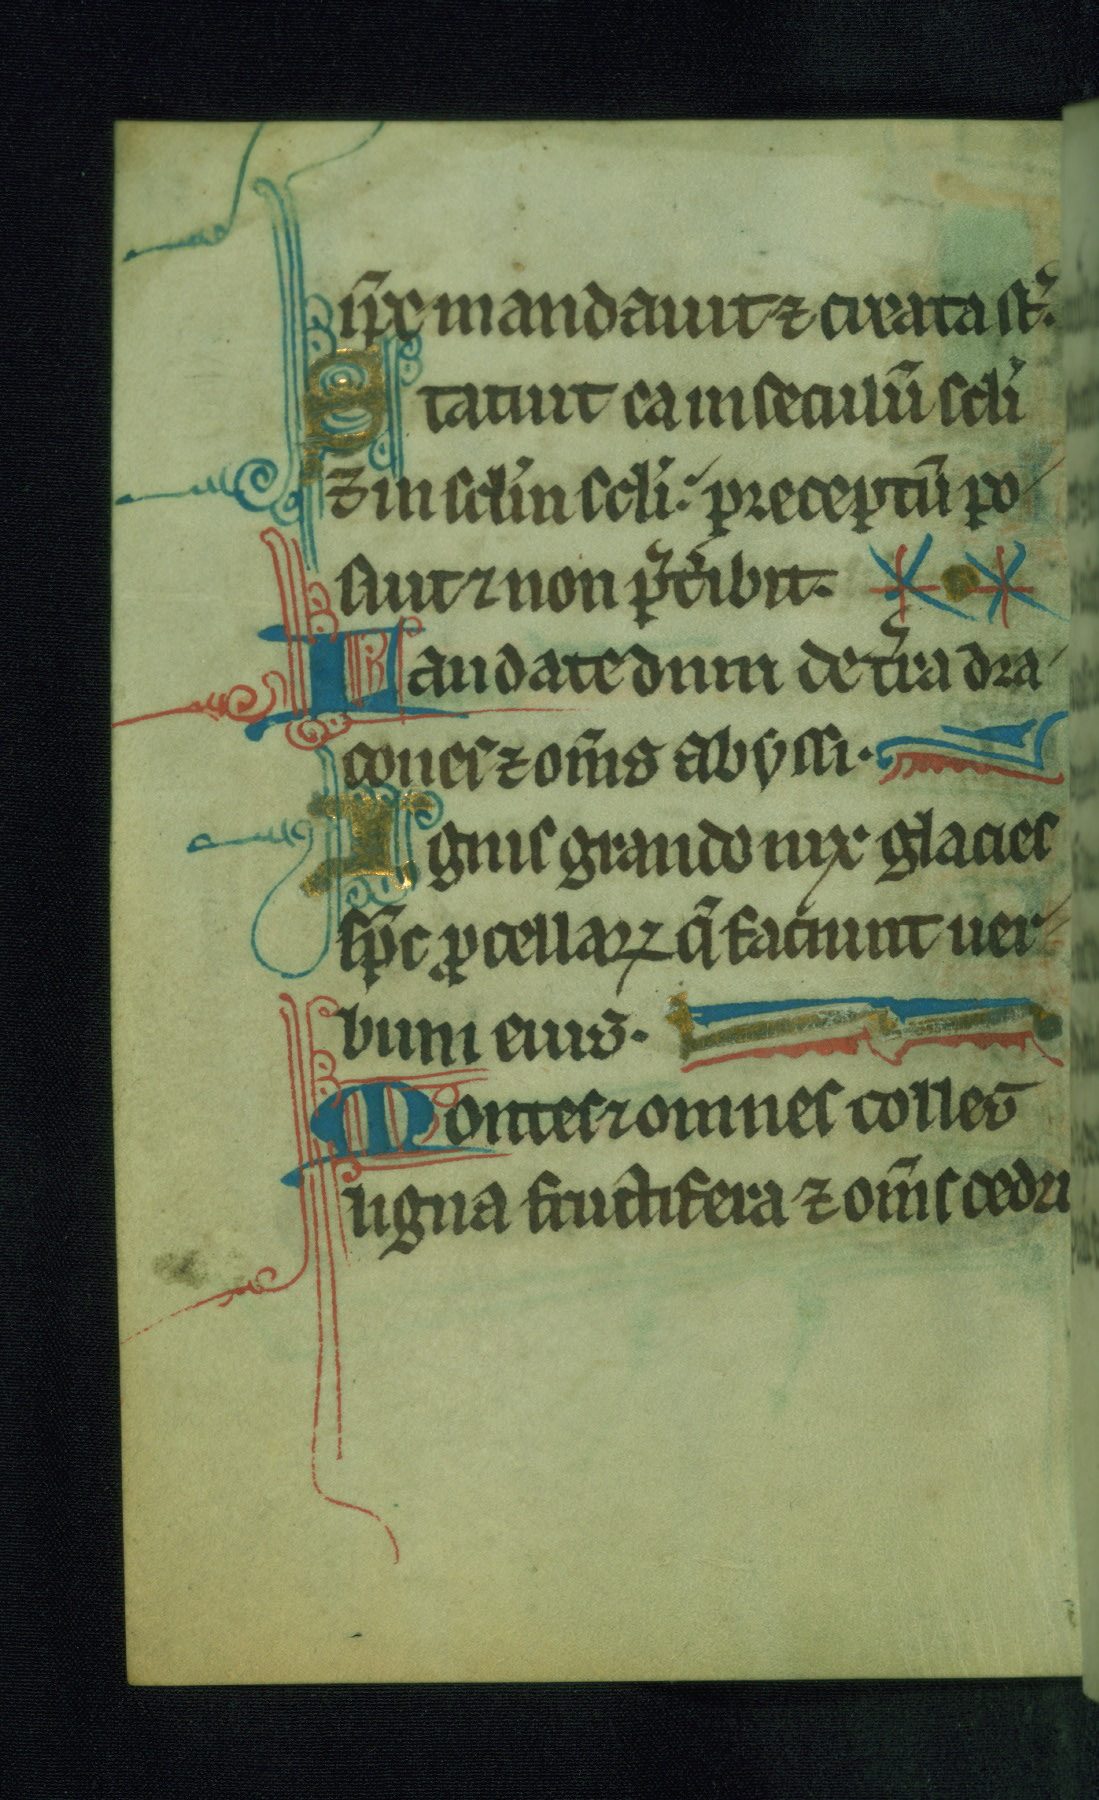 ip̄e mandauit ⁊ creata st̄.
Statuit ea in seculū scl̄i
⁊ in scl̄m scl̄i. preceptū po
suit ⁊ non p̄t̄ibit.
Laudate dnm de t̄ra dra
cones ⁊ om̄s abyssi.
Ignis grando nix glacies
sp̄c ꝓcellaꝝ q̄ faciunt uer
bum eius.
Montes ⁊ omnes colles
ligna fructifera ⁊ om̄s cedri